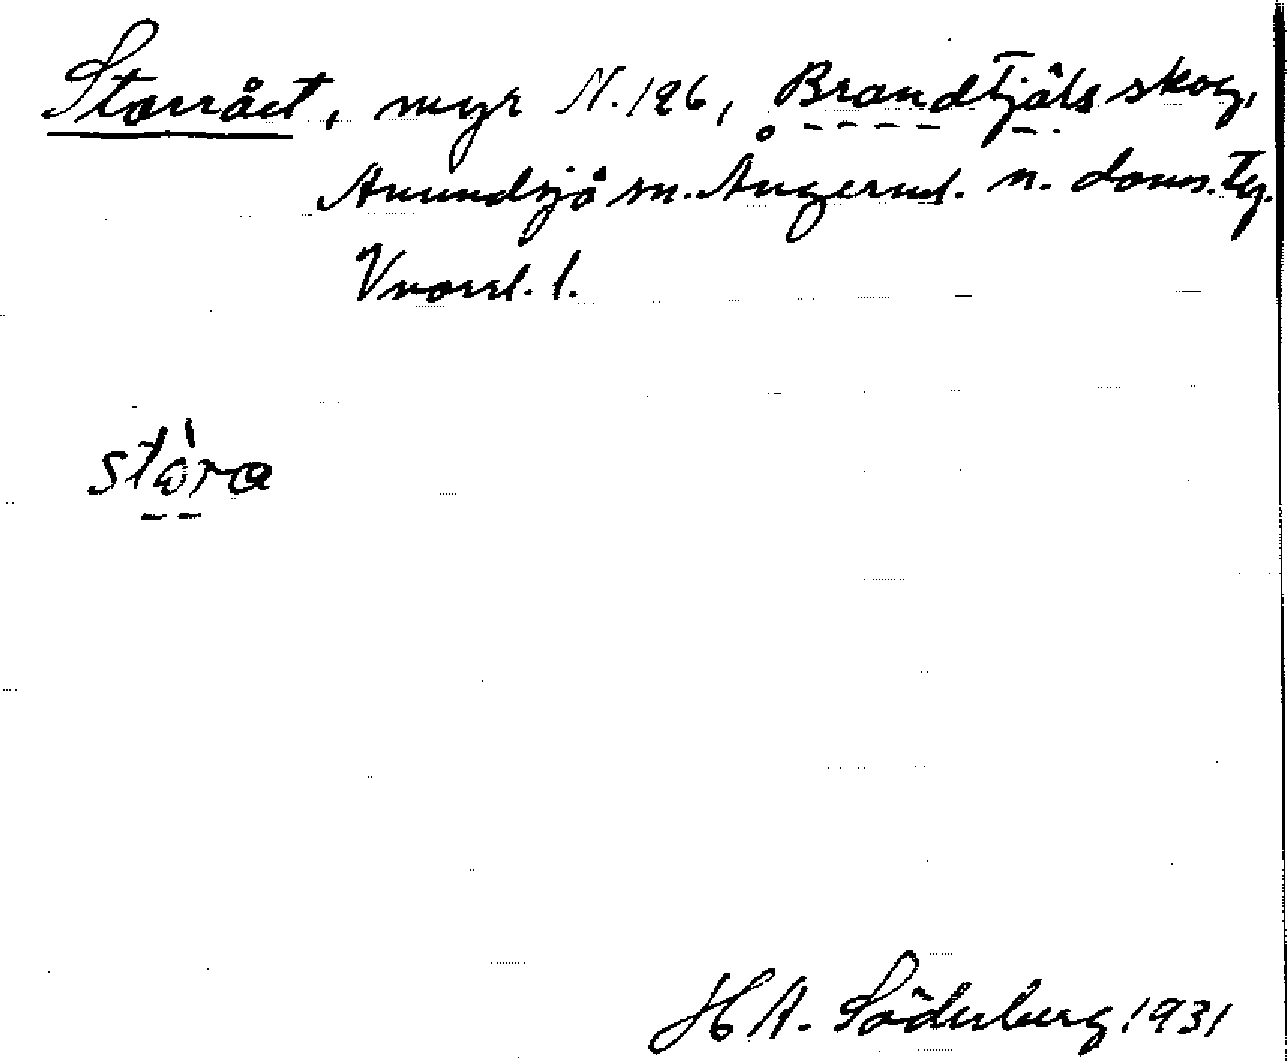 Starråct, myr N. 126, Brandtjäls skog,
Anundsjö sn. Ångerml. n. doms. Tg.
Vnorrl. l.
stà̀ra
H A. Söderberg 1931